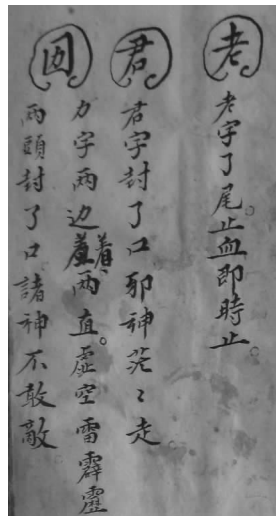 老
老字了尾。止血即時止。
君
君字封了口邪神茫〻走
力字兩边着兩直。虛空雷霹靂
兩頭封了口諸神不敢敵